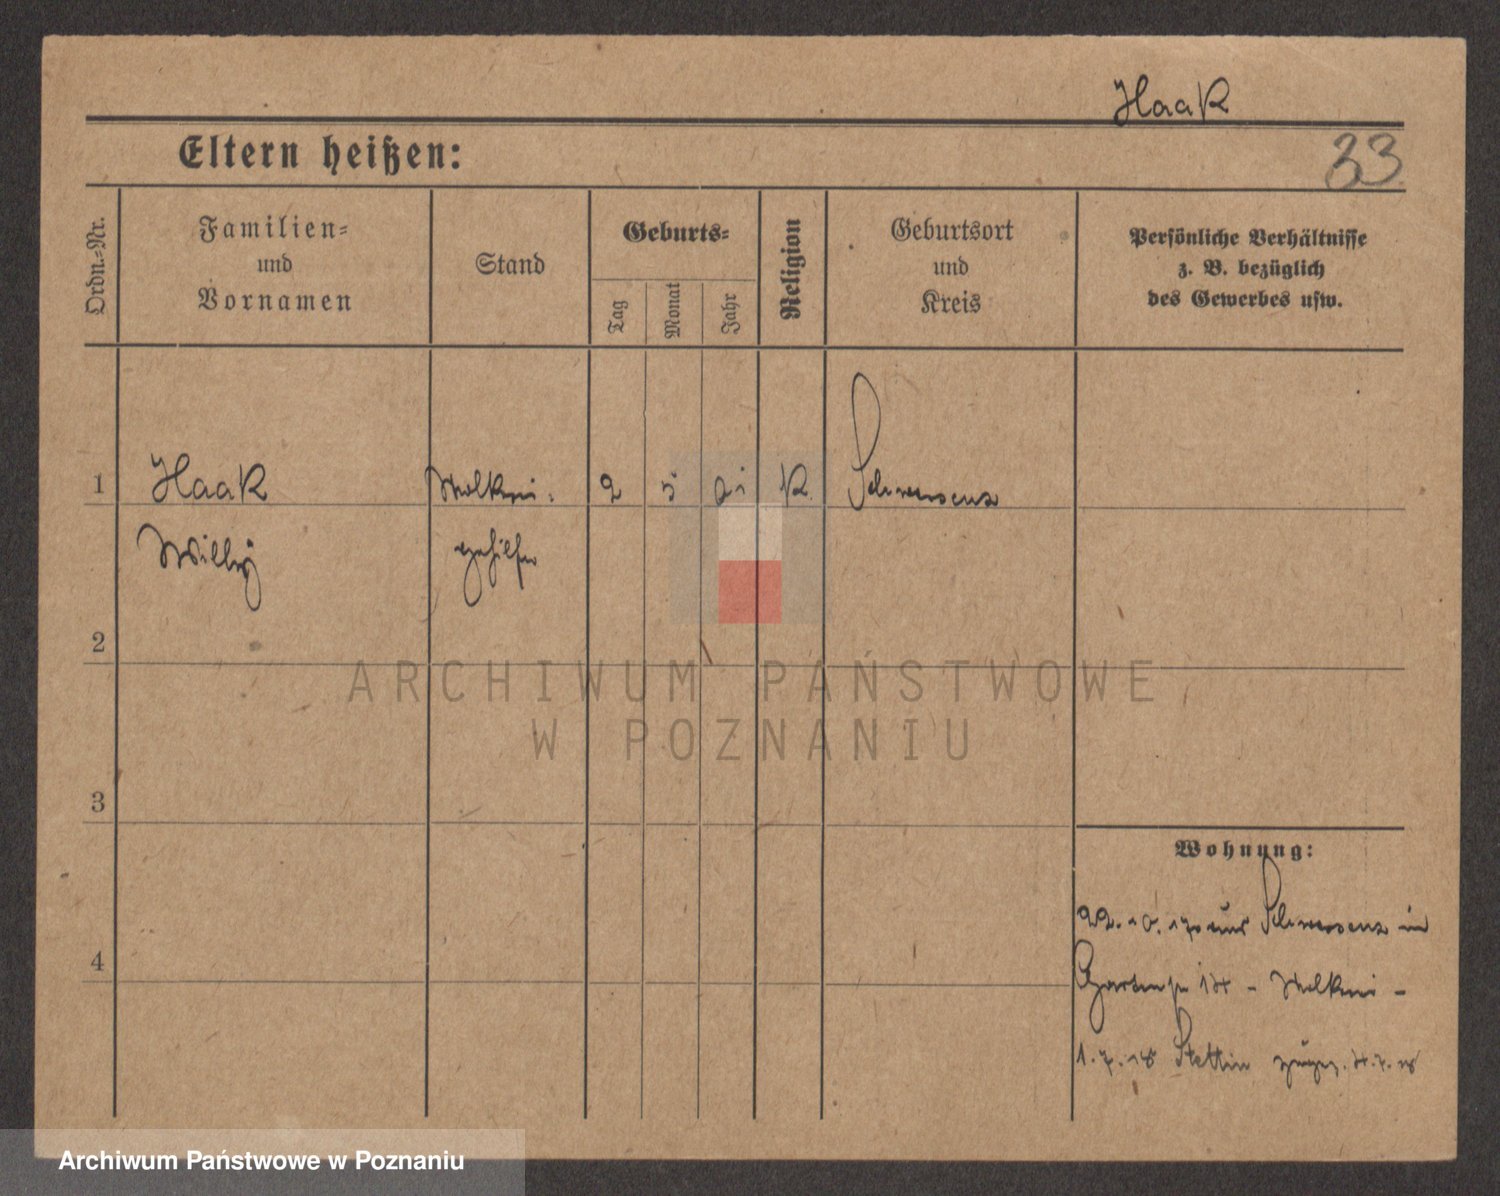 Haak
Eltern heißen:
33
Ordn.-Nr.
Familien-
und
Vornamen
Stand
Geburts-
Tag
Monat
Jahr
Religion
Geburtsort
und
Kreis
Persönliche Verhältnisse
z. B. bezüglich
des Gewerbes usw.
1 Haak Molkerei- 2 5 K Schwersenz
Willy gehilfe
2
3
4
Wohnung:
22. 10. 17 aus Schwersenz in
Gartenstr 14 - Molkerei -
1. 7. 18 Stettin
ARCHIWUM PAŃSTWOWE
W POZNANIU
Archiwum Państwowe w Poznaniu